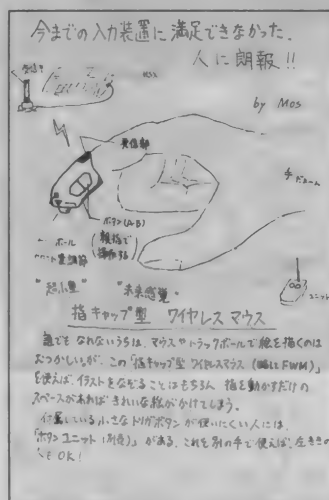 今までの入力装置に満足できなかった、
人に朗報!!
by Mos
発信部
ボタン(A・B)
親指で
操作する
ボール
"超小型" "未来感覚"
ユニット
指キャップ型 ワイヤレスマウス
誰でもなれないうちは、マウスやトラックボールで絵を描くのは
むつかしいが、この「指キャップ型ワイヤレスマウス(略してFWM)」
を使えば、イラストをなぞることはもちろん 指を動かすだけの
スペースがあればきれいな絵がかけてしまう。
付属している小さなトリガボタンが使いにくい人には、
「ボタンユニット(別売)」がある、これを別の手で使えば、左ききの
OK!